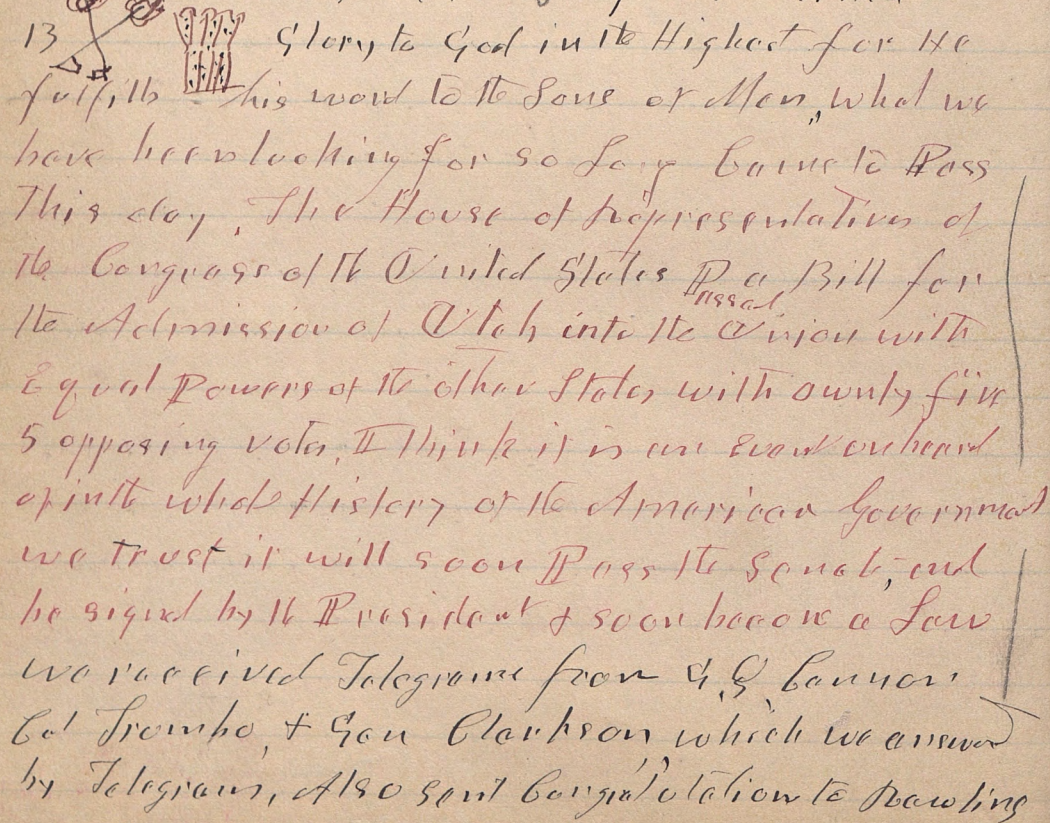 13 Glory to God in the Highest for He
fulfills his word to the Sons of Men, what we
have been looking for so Long Came to Pass
This day, The House of Representatives of
the Congress of the United States Passed a Bill for
the Admission of Utah into the Union with
Equal Powers of the other States with ownly five
5 opposing votes, I Think it is an Event unheard
of in the whol History of the American Government
we trust it will soon Pass the Senate, and
be signd by the President & soon become a Law
we received Telegrams from G, Q, Cannon
Col Trombo, & Gen Clarkson, which we answerd
by Telegrams, Also sent Congratulation to Rawlins